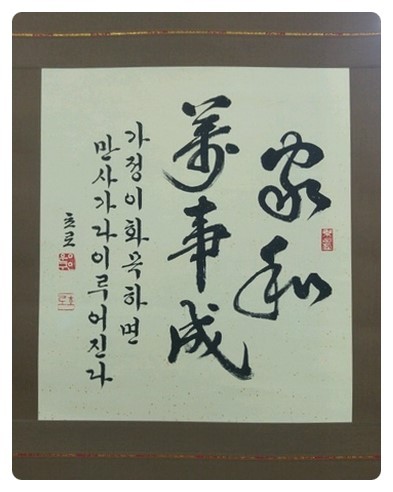 家和
萬事成
가정이화목하면
만사가다이루어진다
초로